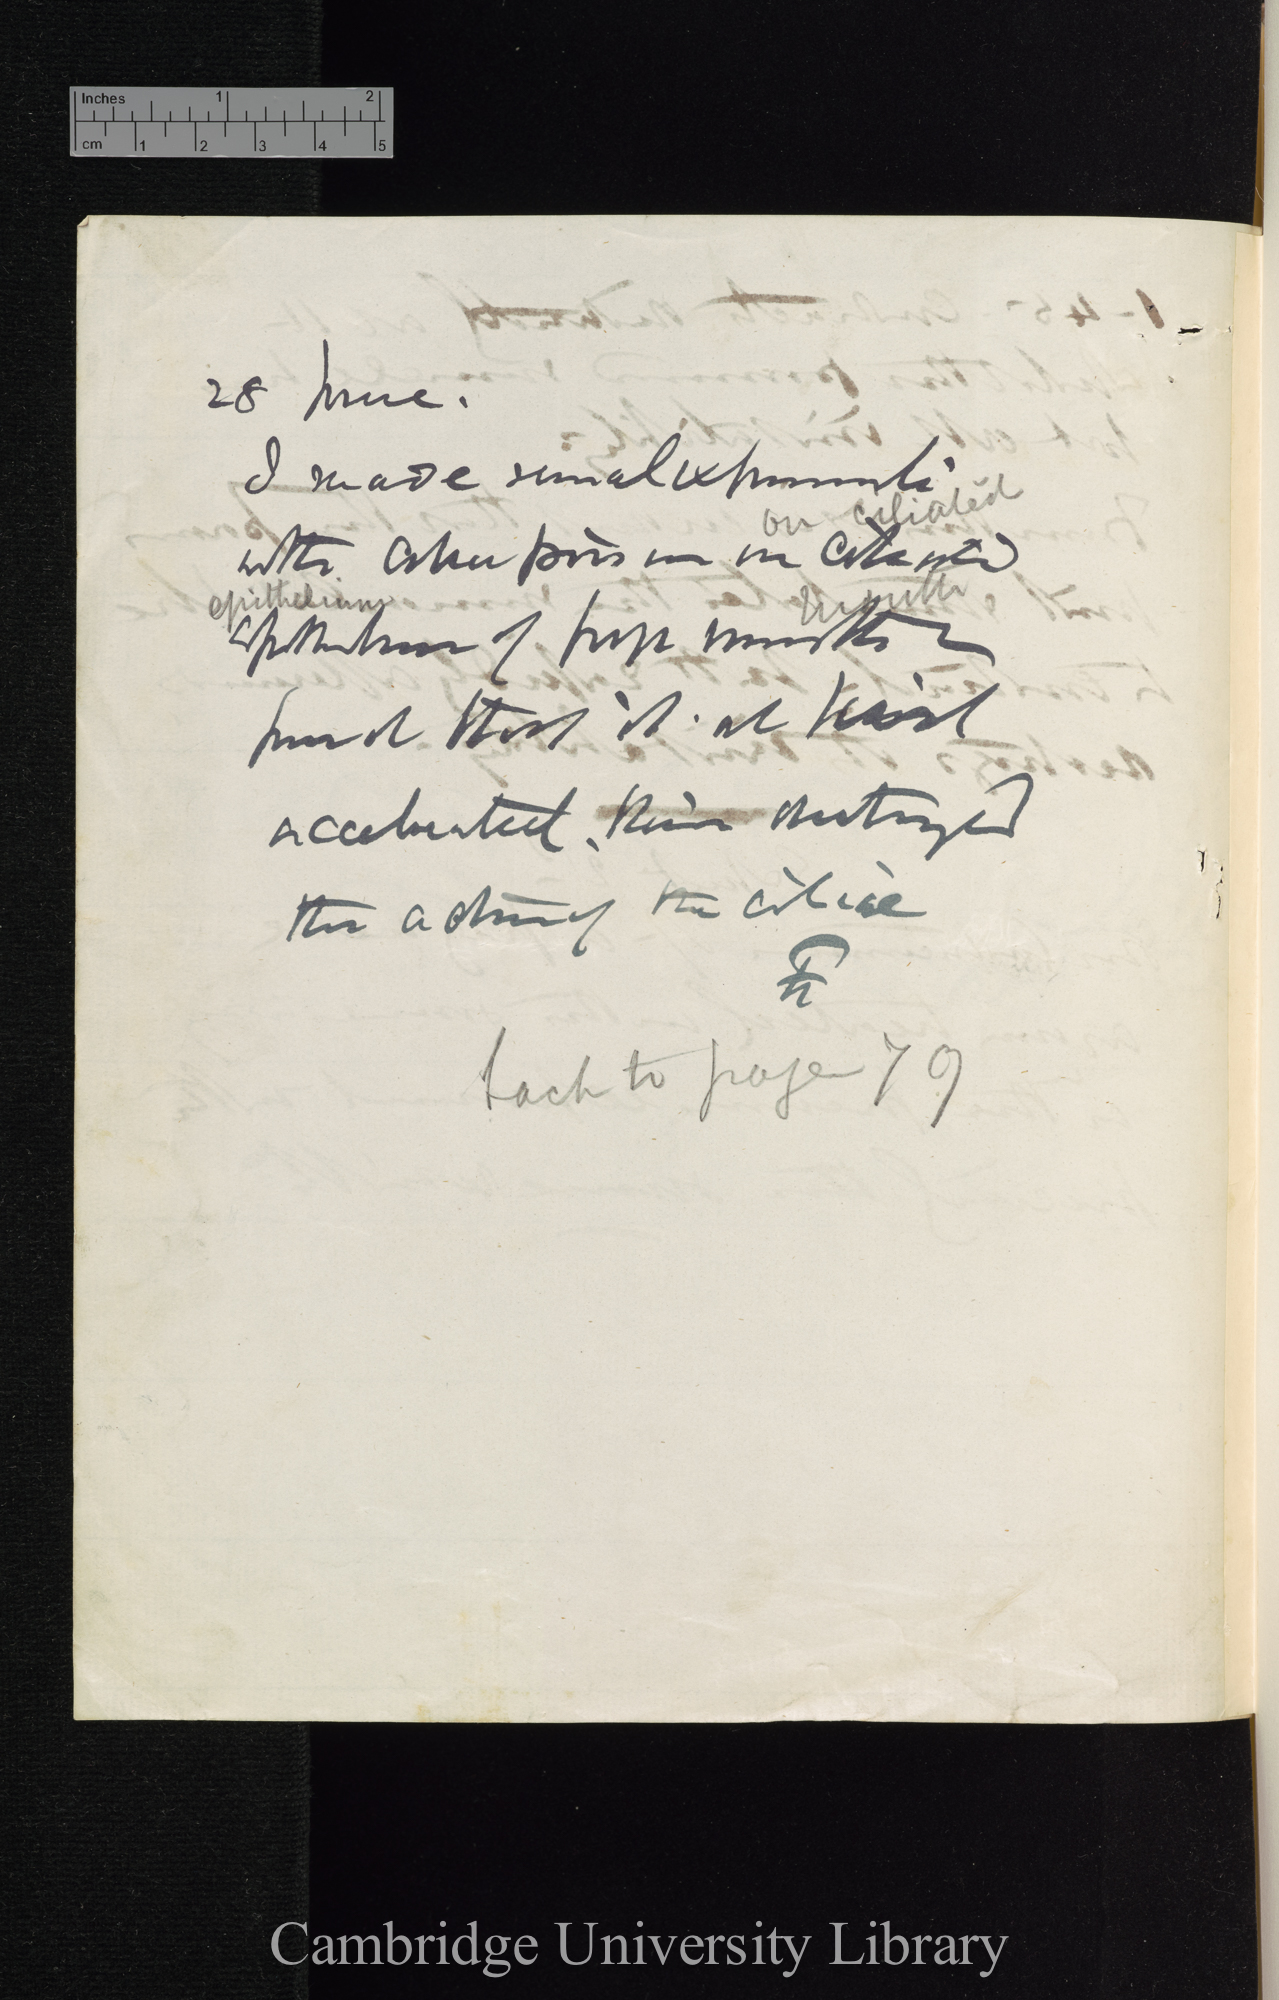 Inches 1 2
cm 1 2 3 4 5
28 June.
I made several experiments
on ciliated
with cobra poison on ciliated
epithelium mouth
epithelium of frogs mouth &
found that it at first
accelerated, then destroyed
the action of the ciliae
back to page 79
Cambridge University Library